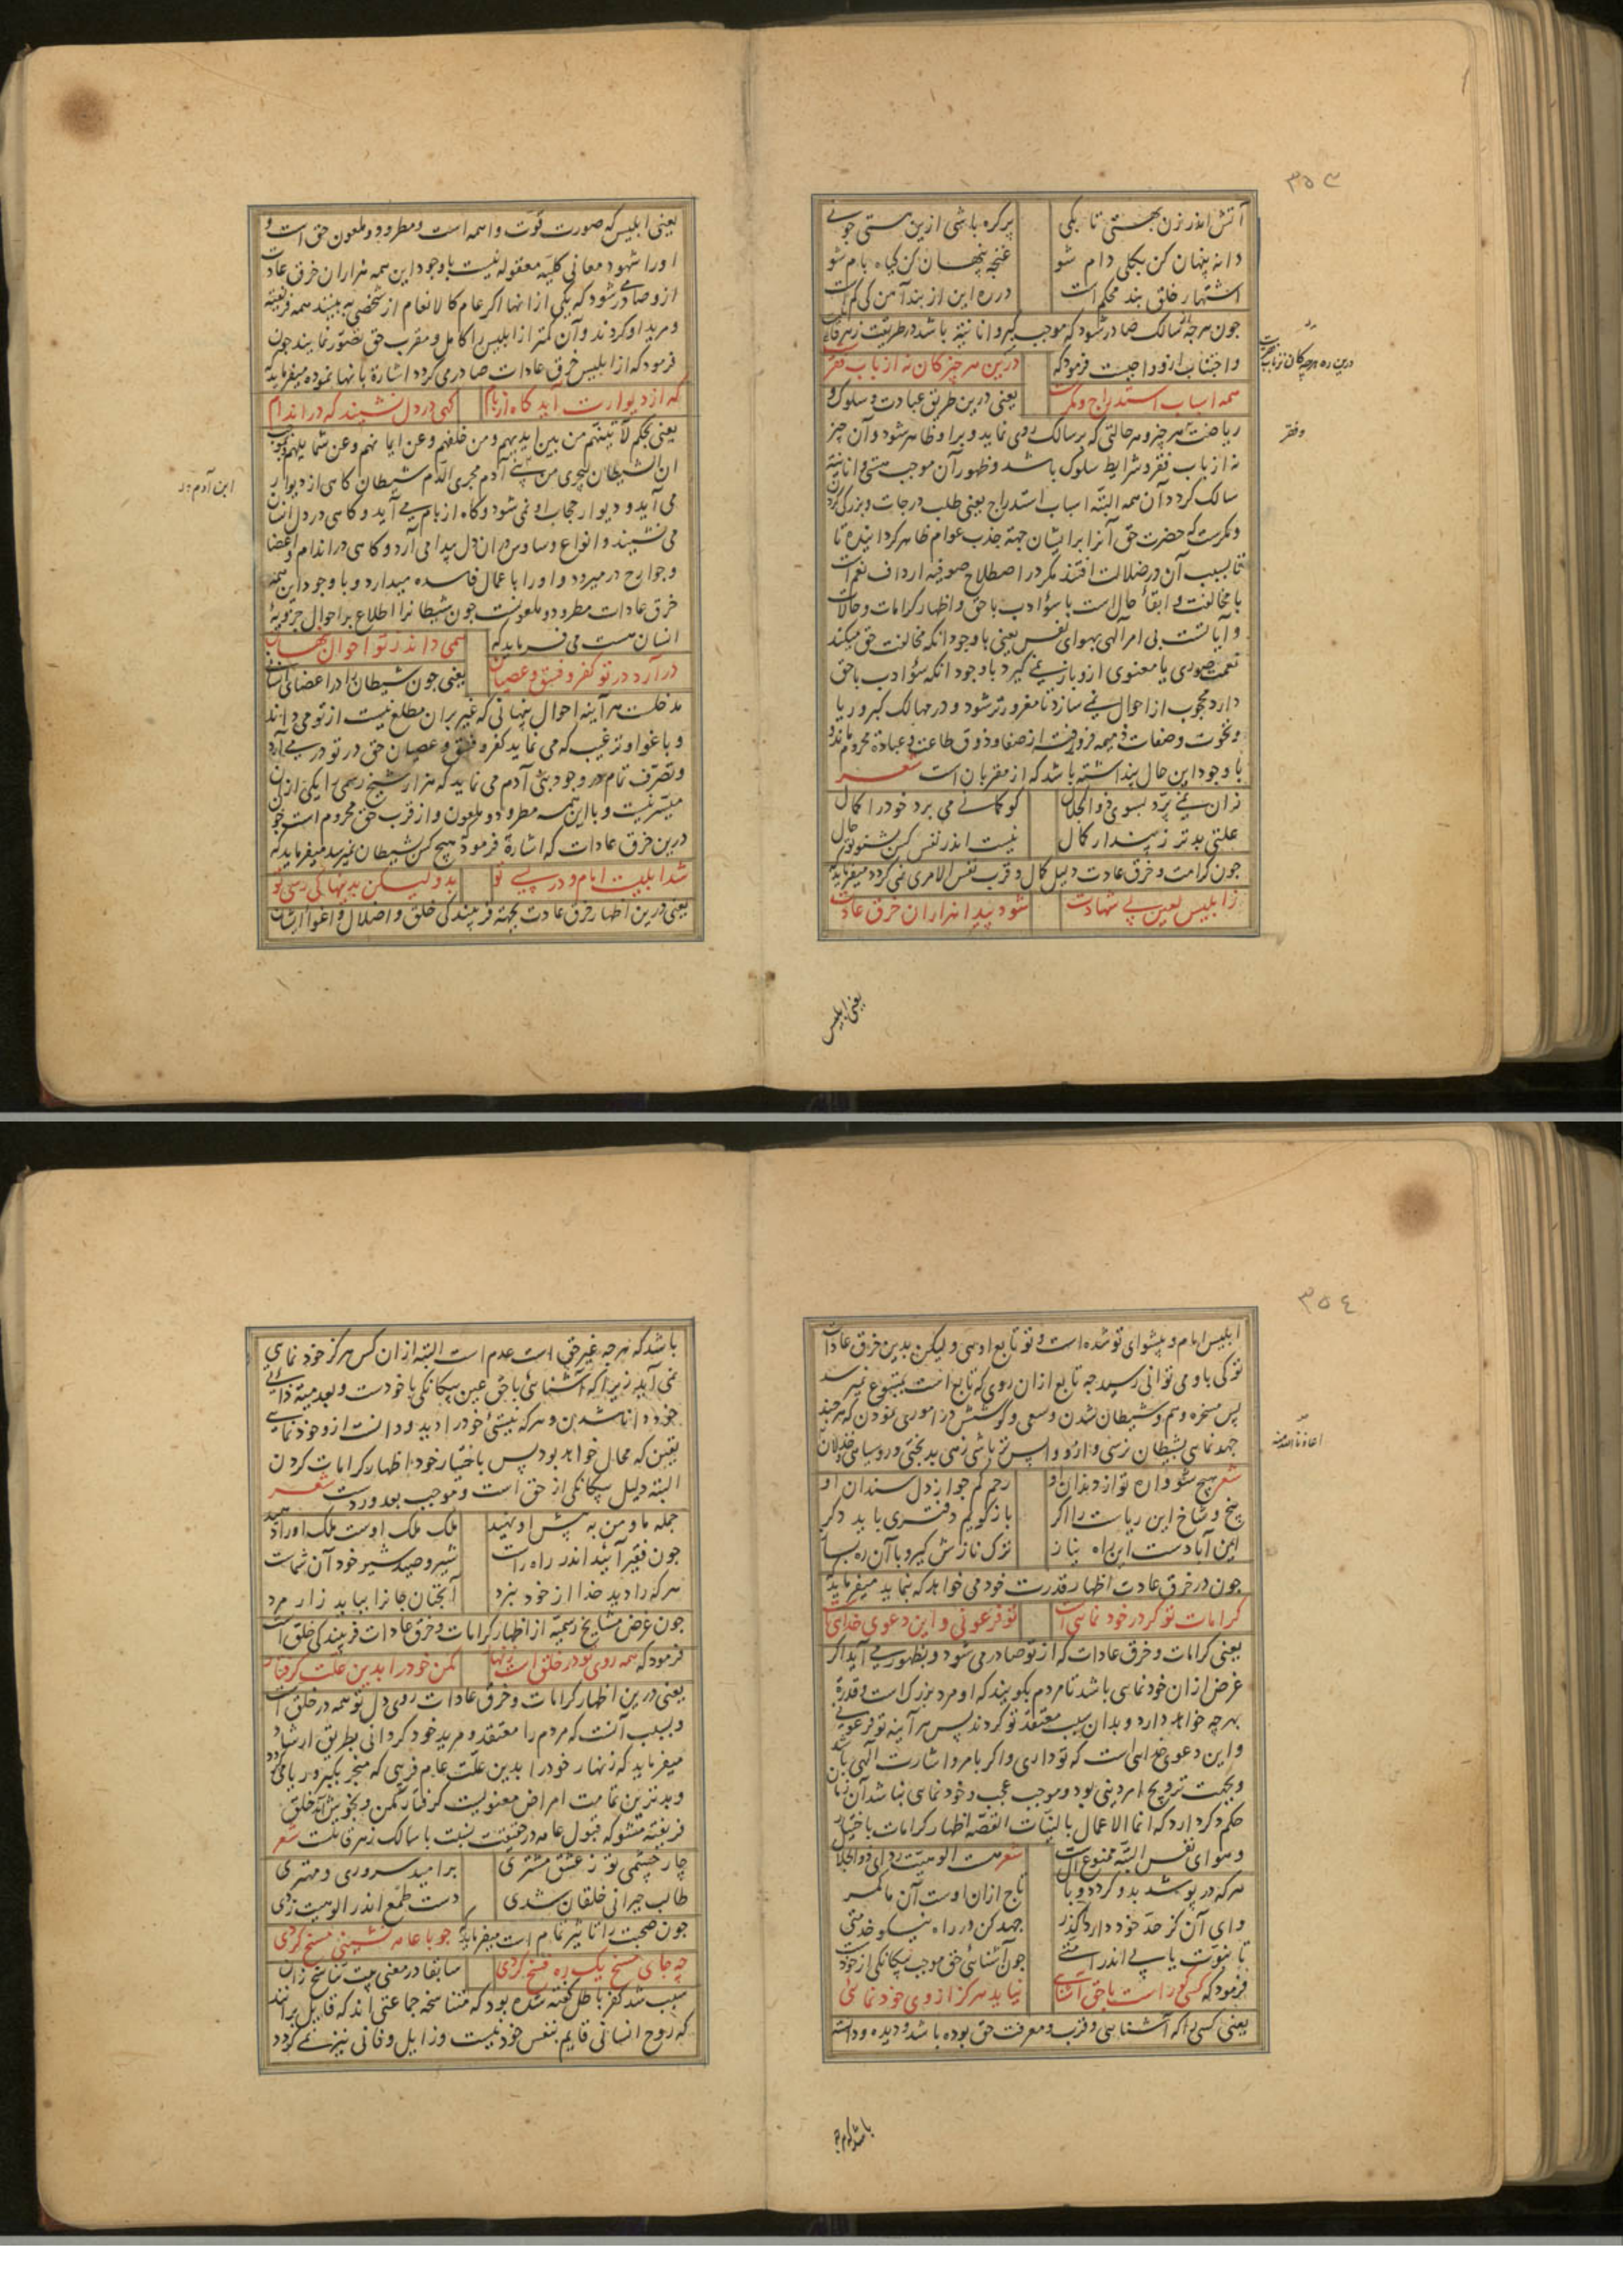 ۳۵۳
آتش اندر زن بهستی تا بکی
پرگره باشی ازین هستی جو نی
دانه پنهان کن بکلی دام شو
غنچه پنهان کن گیاه بام شو
اشتهار خلق بند محکم است
در ره این از بند آهن کی کم است
چون هرچه از سالک صادر شود که موجب کبر و انانیته باشد در طریقت زهر قاتل
و اجتناب ازو واجبت فرمود که
درین ره هر چیز کان نه از باب فقر است
همه اسباب استدراج و مکرست
یعنی درین طریق عبادت و سلوک و
ریاضت هر چیز و هر حالتی که بر سالک روی نماید و برو ظاهر شود و آن چیز
نه از باب فقر و شرایط سلوک باشد و ظهور آن موجب هستی و انانیته
سالک گردد آن همه البته اسباب استدراج یعنی طلب درجات و بزرگی کردن
و مکرست که حضرت حق آنرا بر ایشان جهة جذب عوام ظاهر گردانیده تا
بسبب آن در ضلالت افتند مکر در اصطلاح صوفیه ارداف نعم است
با مخالفت و ابقاء حال است با سؤ ادب با حق و اظهار کرامات و حالات
و آیاتست بی امر آلهی بهوای نفس یعنی باوجود انکه مخالفت حق میکند
نعمت صوری یا معنوی ازو باز نمی گیرد باوجود انکه سؤ ادب با حق
دارد محجوب از احوال نمی سازد تا مغرورتر شود و در مهالک کبر و ریا
و نخوت و صفات ذمیمه فرو رفته از صفا و ذوق طاعت و عبادة محروم ماند و
با وجود این حال پنداشته باشد که از مقربان است شعر
زان نمی پرد بسوی ذوالجلال
کو گمانی می برد خود را کمال
علتی بدتر ز پندار کمال
نیست اندر نفس کس بشنو تو حال
چون کرامت و خرق عادت دلیل کمال و قرب نفس الامری نمی گردد میفرماید
ز ابلیس لعین بی شهادت
شود پیدا هزاران خرق عادت
وفقر
یعنی ابلیس
یعنی ابلیس که صورت قوت واهمه است و مطرود و ملعون حق است و
اورا شهود معانی کلیه معقوله نیست باوجود این همه هزاران خرق عادت
ازو صادر شود که یکی ازانها اگر عام کالانعام از شخصی به بینند همه فریفته
و مرید او گردند و آن کمتر از ابلیس را کامل و مقرب حق تصور نمایند چون
فرمود که از ابلیس خرق عادات صادر می گردد اشارة بانها نموده میفرماید که
گه از دیوارت آید گاه از بام
گهی در دل نشیند گه در اندام
یعنی بحکم لآتینهم من بین ایدیهم و من خلفهم و عن ایمانهم و عن شمایلهم و بموجب
ان الشیطان لیجری من بنی آدم مجری الدم شیطان گاهی از دیوار
می آید و دیوار حجاب او نمی شود و گاه از بام می آید و گاهی در دل انسان
می نشیند و انواع وساوس در ان دل پیدا می آرد و گاهی در اندام و اعضا
و جوارح در میرود و اورا باعمال فاسده میدارد و باوجود این همه
خرق عادات مطرود و ملعونست چون شیطانرا اطلاع بر احوال جزویهٔ
انسان هست می فرماید که
همی داند ز تو احوال پنهان
در آرد در تو کفر و فسق و عصیان
یعنی چون شیطان را در اعضای انسان
مدخلست هر آینه احوال پنهانی که غیر بران مطلع نیست از تو می داند
و باغوا و ترغیب که می نماید کفر و فسق و عصیان حق در تو در می آرد
و تصرف تمام در وجود بنی آدم می نماید که هزار شیخ رسمی را یکی ازان
میسر نیست و با این همه مطرود و ملعون و از قرب حق محروم است چون
درین خرق عادات که اشارة فرمود هیچ کس بشیطان نمیرسد میفرماید که
شد ابلیست امام و در پیی تو
بدو لیکن بدینها کی رسی تو
یعنی درین اظهار خرق عادت بجهته فریبندگی خلق و اضلال و اغواء ایشان
ابن آدم در
۳۵٤
ابلیس امام و پیشوای تو شده است و تو تابع اوئی و لیکن بدین خرق عادات
تو کی باو می توانی رسید چه تابع ازان روی که تابع است بمتبوع نمیرسد
پس مسخره وهم و شیطان شدن و سعی و کوشش در اموری نمودن که هر چند
جهد نمایی بشیطان نرسی و ازو واپس تر باشی زهی بدبختی و روسیاهی و خذلان
شعر هیچ شو وان تو از دندان او
رحم کم جو از دل سندان او
بیخ و شاخ این ریاست را اگر
باز گویم دفتری باید دگر
این آبادست این راه نیاز
ترک نازش گیر و با آن ره بساز
چون در خرق عادت اظهار قدرت خود می خواهد که بنماید میفرماید
کرامات تو گر در خود نمائی است
تو فرعونی و این دعوی خدای است
یعنی کرامات و خرق عادات که از تو صادر می شود و بظهور می آید اگر
غرض ازان خودنمایی باشد تا مردم بگویند که او مرد بزرگ است و قدرة
بهر چه خواهد دارد و بدان سبب معتقد تو گردند پس هر آینه تو فرعونی
و این دعوی خدایی است که تو داری و اگر بامر و اشارت آلهی باشد
و بجهت ترویج امر دینی بود و موجب عجب و خودنمایی نباشد آن زمان
حکم دگر دارد که انما الاعمال بالنیات القصه اظهار کرامات باختیار
و هوای نفس البته ممنوع است
شعر هست الوهیت ردای ذوالجلال
هر که در پوشد بدو گردد وبال
تاج ازان اوست آن ما کمر
وای آن کز حد خود دارد گذر
جهد کن در راه نیکو خدمتی
تا نبوت یابی اندر امتی
چون آشنایی حق موجب بیگانگی از خود است
فرمود که کسی کو راست باحق آشنائی
نیاید هرگز از وی خود نمائی
یعنی کسی را که آشنایی و قرب و معرفت حق بوده باشد و دیده و دانسته
باشد که هرچه
باشد که هرچه غیر حق است عدم است البته ازان کس هرگز خود نمایی
نمی آید زیرا که آشنایی باحق عین بیگانگی باخودست و بعدمیته ذاتی
خود دانا شدن و هر که نیستی خود را دید و دانست ازو خودنمایی
یقین که محال خواهد بود پس باختیار خود اظهار کرامات کردن
البته دلیل بیگانگی از حق است و موجب بعد و ردست شعر
جمله ما و من به پیش او نهید
ملک ملک اوست ملک اورا دهید
چون فقیر آیید اندر راه راست
شیر و صید شیر خود آن شماست
هر که را دید خدا از خود ببرد
آنچنان جانرا بیابد زار مرد
چون غرض مشایخ رسمیه از اظهار کرامات و خرق عادات فریبندگی خلق است
فرمود که همه روی تو در خلق است زنهار
مکن خود را بدین علت گرفتار
یعنی درین اظهار کرامات و خرق عادات روی دل تو همه در خلق است
و بسبب آنست که مردم را معتقد و مرید خود گردانی بطریق ارشاد
میفرماید که زنهار خود را بدین علت عام فریبی که منجر بکبر و ریا می گردد
و بدترین تمامت امراض معنویست گرفتار مکن و بخوش آمد خلق
فریفته مشو که قبول عامه در حقیقت نسبت با سالک زهر قاتلست شعر
چار چشمی تو ز عشق مشتری
بر امید سروری و مهتری
طالب حیرانی خلقان شدی
دست طمع اندر الوهیت زدی
چون صحبت را تاثیر تمام است میفرماید که چو با عامه نشینی مسخ گردی
چه جای مسخ یک ره فسخ گردی
سابقا در معنی بیت تناسخ زان
سبب شد کفر و باطل گفته شده بود که متناسخه جماعتی اند که قایل برانند
که روح انسانی قایم بنفس خود نیست و زایل و فانی نیز نمی گردد